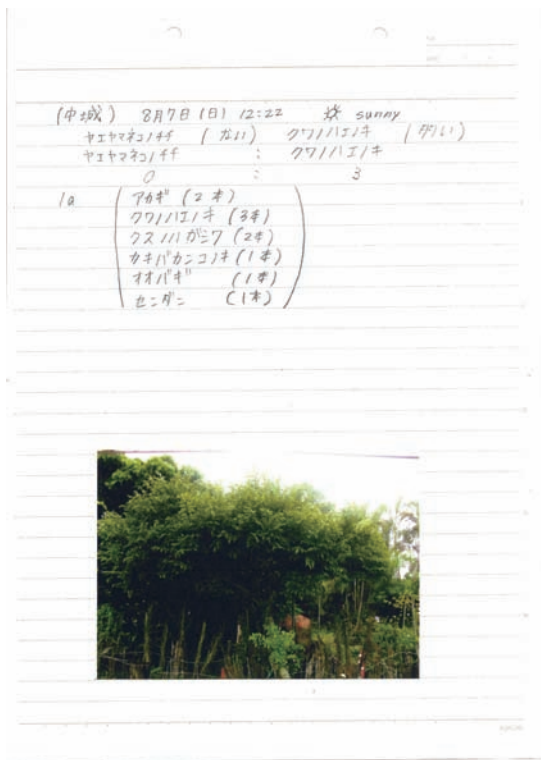 (中城) 8月7日(日) 12:22 sunny
ヤエヤマネコノチチ (ない) クワノハエノキ (あり)
ヤエヤマネコノチチ : クワノハエノキ
0 : 3
1a アカギ (2本)
クワノハエノキ (3本)
クスノハガシワ (2本)
カキバカンコノキ (1本)
オオバギ (1本)
センダン (1本)